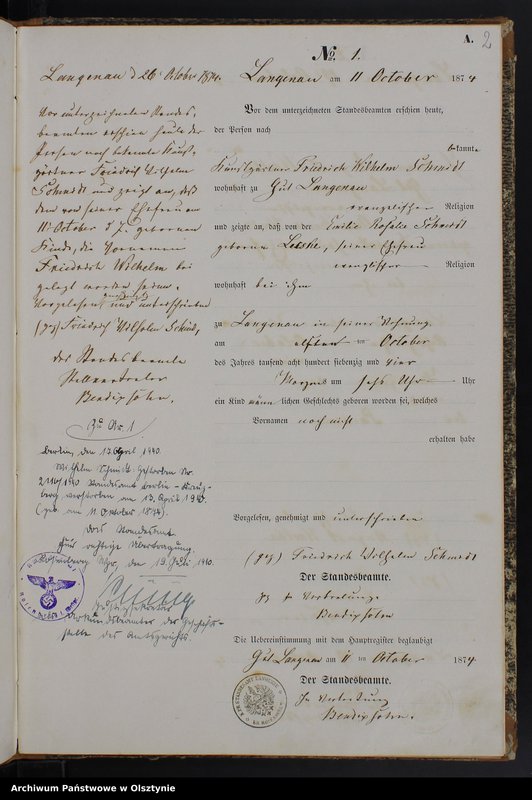 A.
2
No. 1.
Langenau am 11 October 1874
Vor dem unterzeichneten Standesbeamten erschien heute,
der Person nach
bekannte
Kunstgärtner Friedrich Wilhelm Schmidt
wohnhaft zu Gut Langenau
evangelischer Religion
und zeigte an, daß von der Emilie Rosalie Schmidt
geborenen seiner Ehefrau
evangelischer Religion
wohnhaft bei ihm
zu Langenau in seiner Wohnung
am elften ten October
des Jahres tausend acht hundert siebenzig und vier
Morgens um sechs Uhr Uhr
ein Kind männlichen Geschlechts geboren worden sei, welches
Vornamen noch nicht
erhalten habe
Vorgelesen, genehmigt und unterschrieben
(gez) Friedrich Wilhelm Schmidt
Der Standesbeamte.
In Vertretung
Bendixsohn
Die Uebereinstimmung mit dem Hauptregister beglaubigt
Gut Langenau am 11 ten October 1874
Der Standesbeamte.
In Vertretung
Bendixsohn.
Langenau d 26t October 1874.
Vor unterzeichneten Standes-
beamten erschien heute der
Person nach bekannte Kunst-
gärtner Friedrich Wilhelm
Schmidt und zeigt an, daß
dem von seiner Ehefrau am
11t October d J. geborenen
Kinde, die Vornamen
Friedrich Wilhelm bei
gelegt worden seien.
Vorgelesen, genehmigt und unterschrieben
(gez) Friedrich Wilhelm Schmidt,
der Standesbeamte
Stellvertreter
Bendixsohn.
Zu Nr. 1
Berlin, den 17. April 1940.
Wilhelm Schmidt gestorben Nr.
1940 Standesamt Berlin - Kreuz-
berg verstorben am 13. April 1940
(geb. am 11. Oktober 1874).
Das Standesamt
Für richtige Übertragung.
den 19. Juli 1940.
Justizsekretär
Urkundsbeamter der Geschäfts-
stelle des Amtsgerichts.
Archiwum Państwowe w Olsztynie